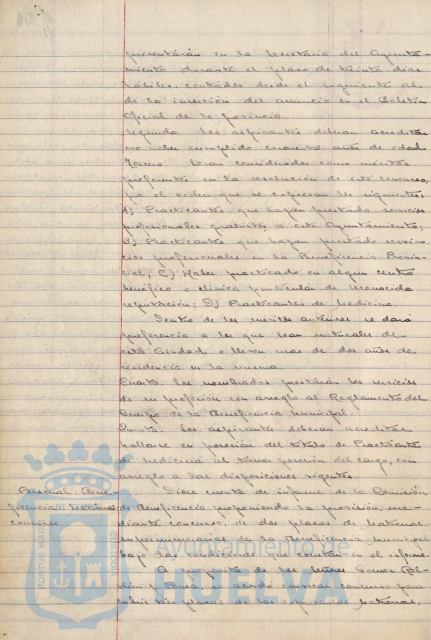 presentarán en la Secretaría del Ayunta-
miento durante el plazo de treinta dias
hábiles, contados desde el siguiente al
de la inserción del anuncio en el Boletín
Oficial de la provincia.
Segunda. Los aspirantes deberan acreditar
no haber cumplido cuarenta años de edad
Tercero. Serán considerados como méritos
preferentes en la resolución de este concurso,
por el orden que se expresan los siguientes:
A) Practicantes que hayan prestado servicios
profesionales gratuitos a este Ayuntamiento;
B) Practicantes que hayan prestado servi-
cios profesionales en la Beneficencia Provin-
cial; C) Haber practicado en algun centro
benéfico o clínica particular de reconocida
reputación; D) Practicantes de Medicina.
Dentro de los meritos anteriores se dará
preferencia a los que sean naturales de
esta Ciudad o lleven mas de dos años de
residencia en la misma.
Cuarta. Los nombrados prestarán los servicios
de su profesión con arreglo al Reglamento del
Cuerpo de la Beneficencia Municipal.
Quinta. Los aspirantes deberán acreditar
hallarse en posesión del título de Practicante
de Medicina al tomar posesión del cargo, con
arreglo a las disposiciones vigentes.
Personal: Bene-
ficencia: Matronas
concurso.
Diose cuenta de informe de la Comisión
de Beneficencia proponiendo la provisión, me-
diante concurso, de dos plazas de Matronas
supernumerarias de la Beneficencia Municipal
bajo las condiciones que constan en el informe.
A propuesta de los señores
y se acordó convocar concurso para
cubrir tres plazas de las expresadas Matronas,
Ayuntamiento de
HUELVA